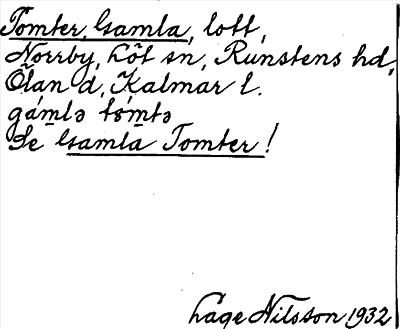 Tomter, Gamla, lott,
Norrby, Löt sn, Runstens hd,
Öland, Kalmar l.
gámlə tǿmtə
Se Gamla Tomter!
Lage Nilsson 1932